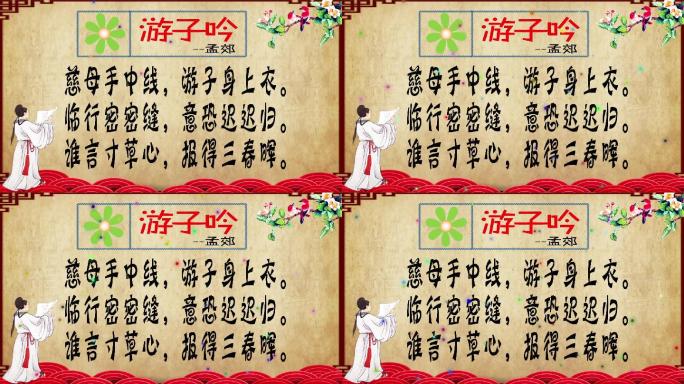 游子吟
--孟郊
慈母手中线，游子身上衣。
临行密密缝，意恐迟迟归。
谁言寸草心，报得三春晖。
游子吟
--孟郊
慈母手中线，游子身上衣。
临行密密缝，意恐迟迟归。
谁言寸草心，报得三春晖。
游子吟
--孟郊
慈母手中线，游子身上衣。
临行密密缝，意恐迟迟归。
谁言寸草心，报得三春晖。
游子吟
--孟郊
慈母手中线，游子身上衣。
临行密密缝，意恐迟迟归。
谁言寸草心，报得三春晖。